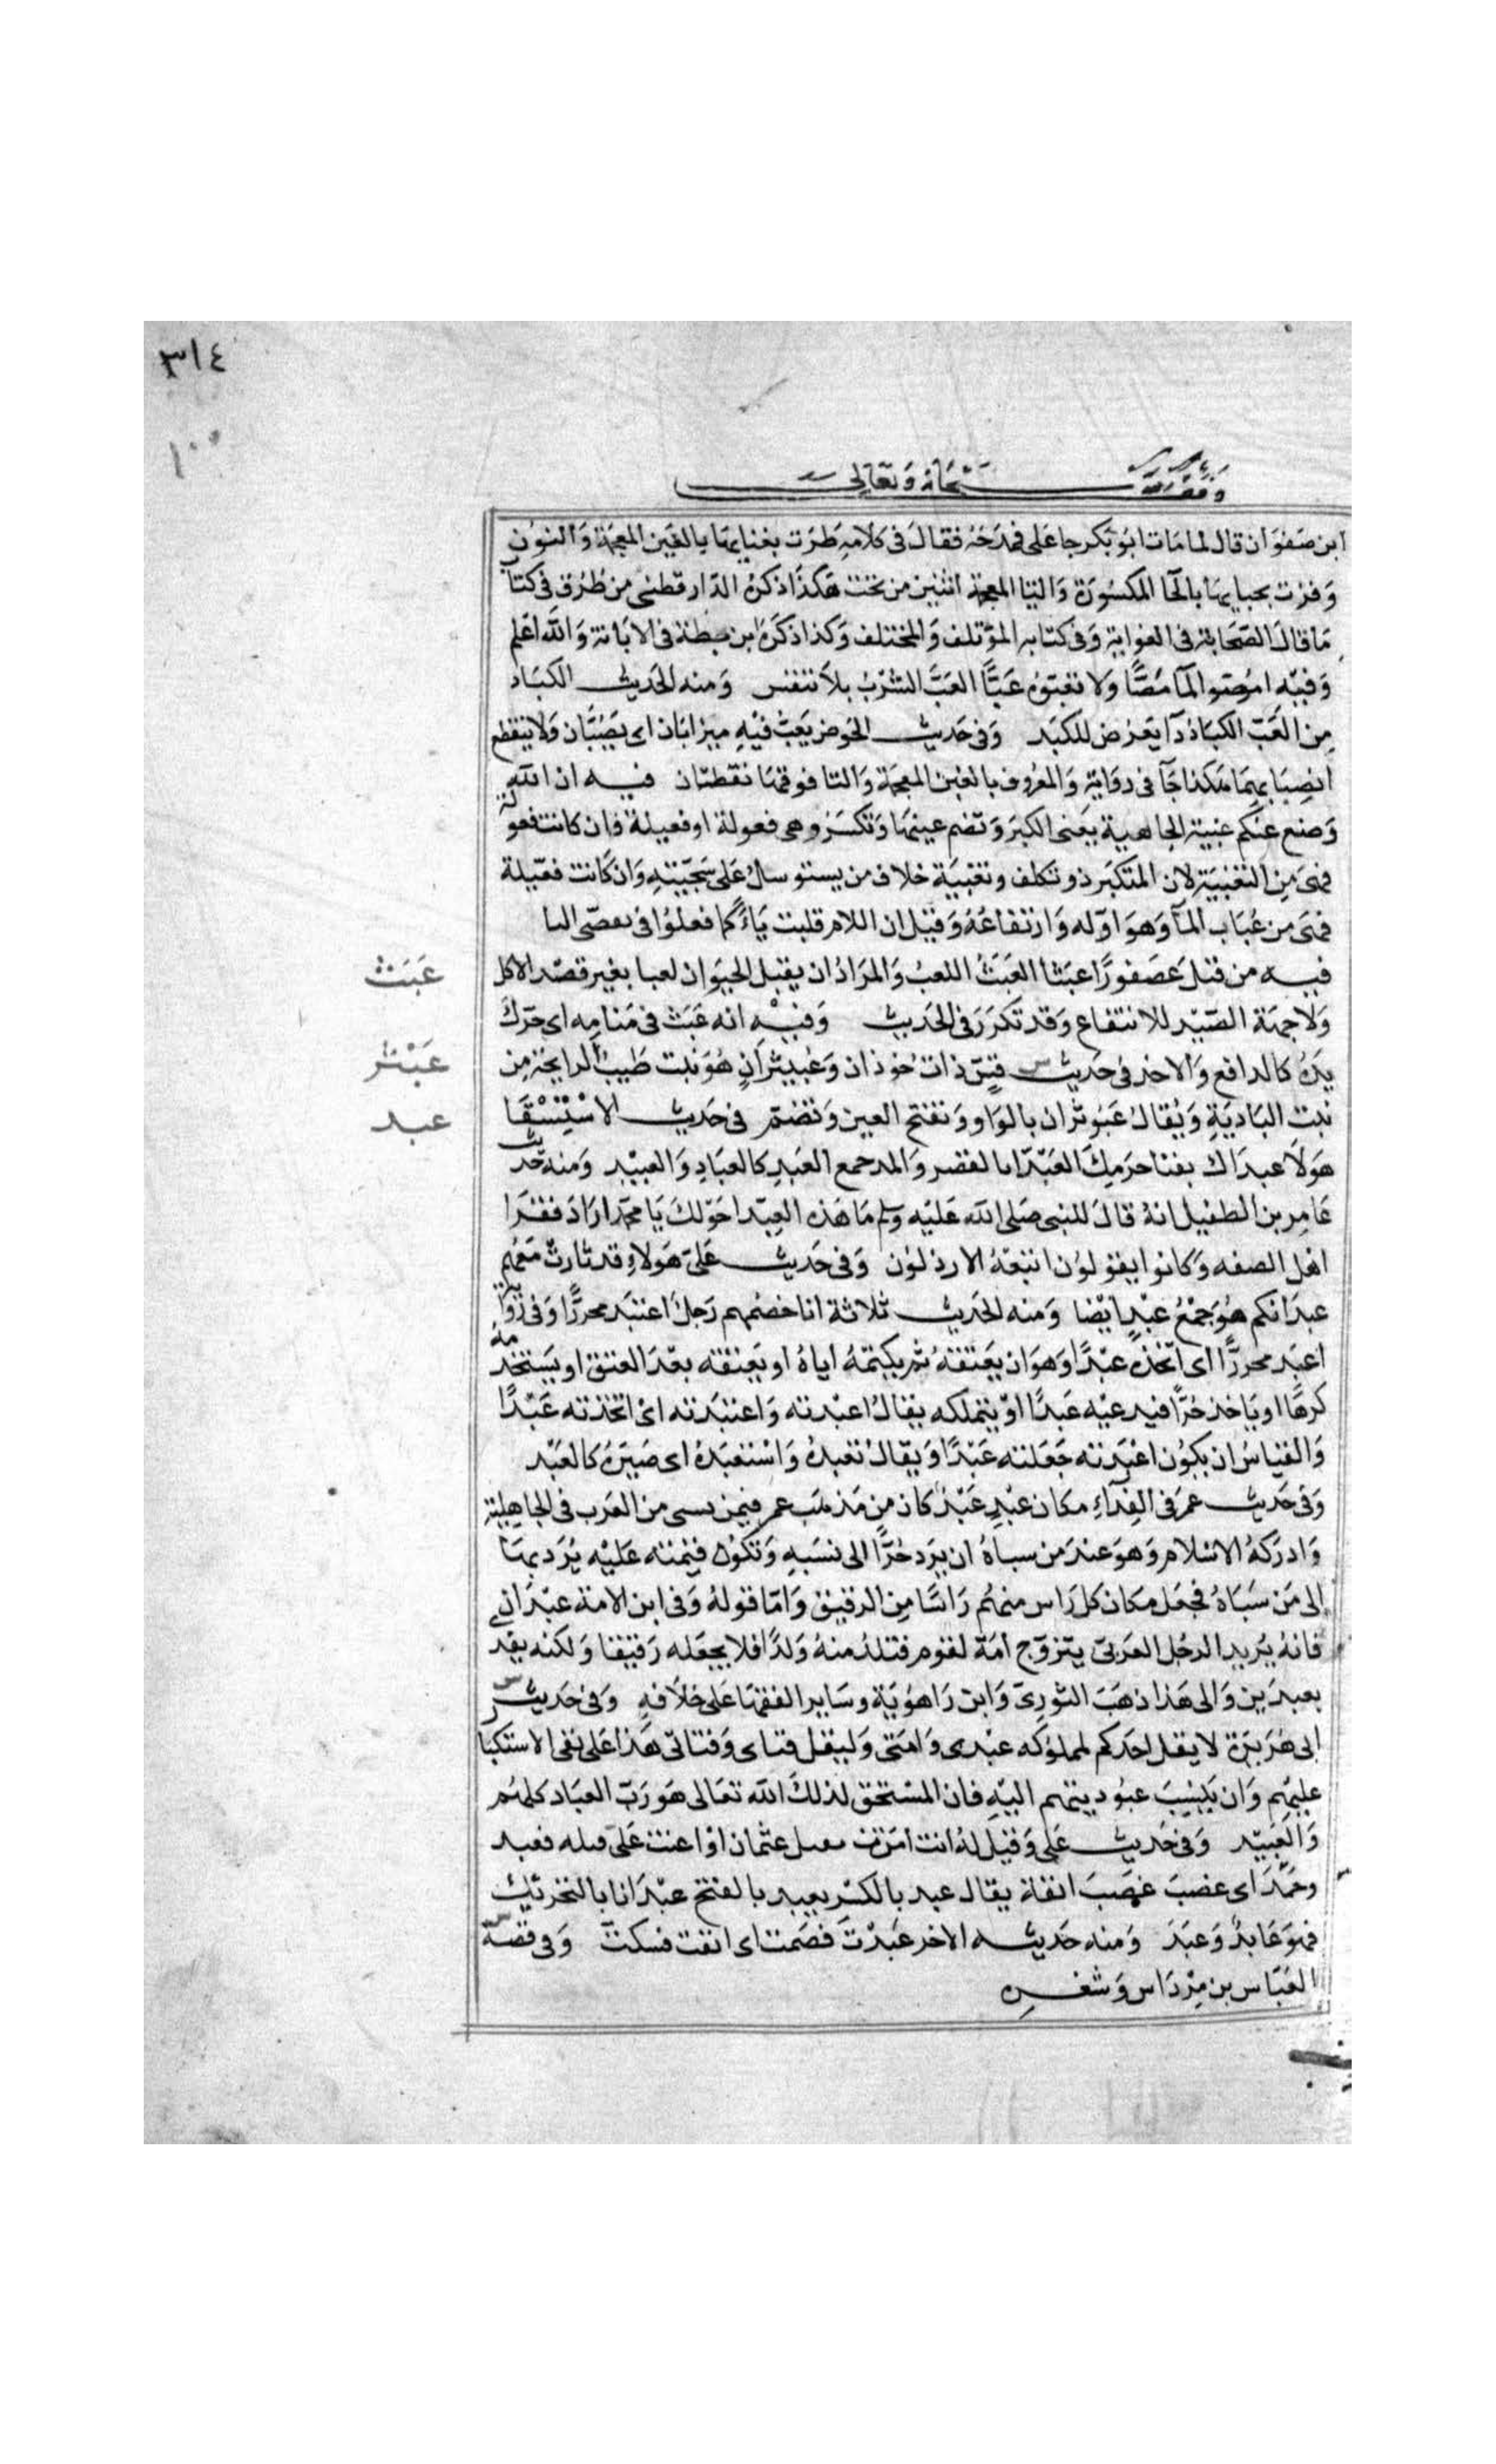 ٣١٤
١٠٠
وقف لله سبحانه وتعالى
ابن صَفوَان قال لما مَات ابوُ بَكر جا عَلى فمدَحَهُ فقالَ فى كلامِهِ طرَت بغنايِهَا بالغَين المعجَمة وَالنوُن
وَفزت بحيايهَا بالحَا المكسُورَة وَاليَا المعجمة اثنين من تحت هَكذا ذكرَهُ الدّارقطنى من طُرُق فى كتاب
مَا قالَ الصّحَابَة فى القرابة وَفى كتابه المؤتلف وَالمختلف وَكذا ذكرَهُ ابن بطة فى الابَانة وَالله اعَلم
وَفيْه امُصّوا المآ مَصًّا وَلا تعبّوُه عَبًّا العَبَّ الشرْبُ بلا تنفس وَمنه الحَديث الكبَاد
مِن العَبّ الكبَادُ دآ يَعرُض للكبَد وَفى حَديث الحَوض يَعبّ فيْهِ ميزابَان اى يَصُبَّان وَلا ينقطع
انصِبَابهمَا هَكذا جَآ فى روَاية وَالمعرُوف بالغين المعجمَة وَالتا فوقهَا نقطتان فيه ان الله
وَضع عَنكم عبية الجاهلية يَعنى الكبرَ وَتضم عينهَا وَتكسَرُ وهى فعولة او فعيلة فان كانت فعولة
فهىَ من التعْبيَة لان المتكبّر ذو تكلف وتعْبيَة خلاف من يسترسلُ عَلى سَجيّته وَان كَانت فعّيلة
فهىَ من عُبَاب المآ وَهوَ اوّله وَارتفاعُهُ وَقيل ان اللام قلبت يَاءً كما فعلوُا فى تقضّى البا
عَبَث
فيه من قتل عَصفورًا عبَثا العَبَثُ اللعبُ وَالمرَادُ ان يقتل الحيَوان لعبا بغير قصْد الاكل
وَلا جهَة الصَّيْد للانتفاع وَقد تكرَرَ فى الحَديث وَفيْه انه عَبَث فى مَنامِه اى حرّكَ
عَبْثر
يدَهُ كالدافع وَالاخذ فى حَديث قسّ ذاتُ حوذان وَعَبيثرَان هُوَ نبت طيبُ الرايحَة مِن
عبد
نبْت البَاديَةِ وَيُقالُ عَبَوثرَان بالوَاو وَتفتح العين وَتضمّ فى حَديث الاسْتِسْقَا
هَولا عبدَاك بفنا حرَمِكَ العَبّدَا بالقصْر وَالمد جمع العَبد كالعبَادِ وَالعبيْد وَمنه حَديث
عَامِر بن الطفيل انهُ قالَ للنبى صَلى الله عَليْه وسلم مَا هَذه العِبدّا حَوْلكَ يَا محمّد ارَادَ فقرَا
اهْل الصفه وَكانوا يقولوُن اتبعَهُ الارذلوُن وَفى حَديث عَلىّ هَولاءِ قد ثارت مَعَهُم
عبدَانكم هُوَ جمْعُ عَبْدٍ ايْضا وَمنه الحَديث ثلاثة انا خصْمهم رَجلٌ اعتبَد محررًّا وَفى رواية
اعبَد محررًّا اى اتخذه عبْدًا وَهوَ ان يَعتقهُ ثم يكتمَهُ اياهُ او يَعتقله بعْدَ العتق او يَستخدمه
كرهًا او يَاخذ حُرًّا فيدعيْه عَبدًا اوْ يتملكه يقالُ اعبْدته وَاعتبَدته اىْ اتخذته عَبْدًا
وَالقياسُ ان يكوُن اعْبَدته جَعَلته عَبْدًا وَيقالُ تعَبدهُ وَاسْتعبَدهُ اى صَيّرَهُ كالعَبْد
وَفى حَديث عمرَ فى الفِدَآءِ مكان عَبْدٍ عَبْدٌ كان مِن مَذهَب عمر فيمن سبى من العَرَب فى الجاهِلية
وَادرَكهُ الاسْلام وَهوَ عندَ من سباهُ ان يرَد حُرًّا الى نسَبه وَتكوُن قيمته عَليْه يُؤدّيهَا
الى مَن سَبَاهُ فجعَل مكان كل رَاس منهُم رَاسًا مِن الرقيق وَامّا قولهُ وَفى ابن الامة عَبْدَان
فانهُ يُريد الرجُل العَربىّ يتزوّج امَة لقوم فتلدُ منهُ وَلدًا فلا يجعَله رَقيقا وَلكنه يفدى
بعبدَين وَالى هَذا ذهَبَ الثوريّ وَابن رَاهوُيَة وسَاير الفقهَا عَلى خلافهِ وَفى حَديث
ابى هُرَيرَة لا يقل احَدكم لمملوُكه عبْدى وَامَتى وَليقل فتاى وَفتاتى هَذا عَلى نفى الاستكبا
عليْهم وَان يَنسبَ عبُوديتهم اليْهِ فان المسْتحق لذلكَ الله تعَالى هوَ رَبّ العبَاد كلهُم
وَالعَبيْد وَفى حَديث عَلى وَقيلَ لهُ انت امَرت بقتل عثمان اوْ اعنت عَلىَ قتله فعبد
وضَمَدَ اى غضبَ غضَبَ انفة يقال عبد بالكسْر يعبد بالفتح عبْدَا بالتحْريْك
فهوَ عَابدٌ وَعَبدَ وَمنه حَديثه الاخر عَبدْتَ فصَمَت اى انفت فسكت وَفى قصَّة
العَبّاس بن مِرْدَاس وَشعْرِه